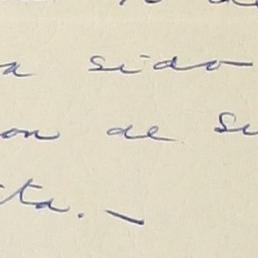 sido
on de su
ta. –